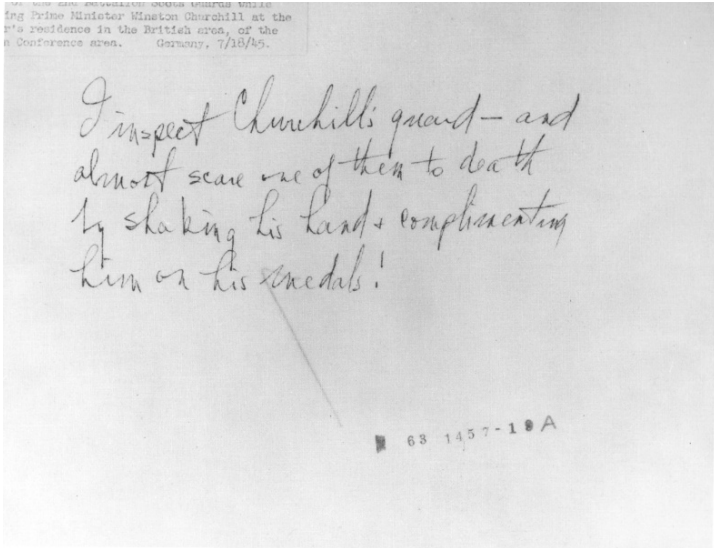 of the 2nd Battalion Scots Guards while
ing Prime Minister Winston Churchill at the
r's residence in the British area, of the
Conference area. Germany. 7/18/45.
I inspect Churchill's guard — and
almost scare one of them to death
by shaking his hand + complimenting
him on his medals!
63 1457-19A